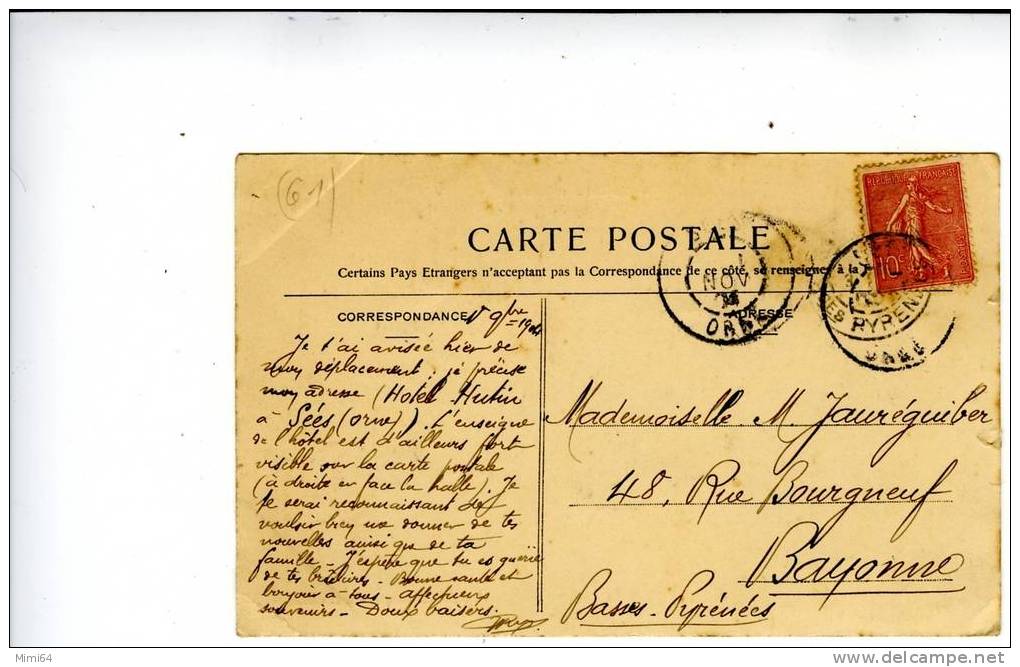 (61)
REPUBLIQUE FRANÇAISE
10c
CARTE POSTALE
Certains Pays Etrangers n'acceptant pas la Correspondance de ce côté, se renseigner à la
NOV
ORNE
PYRENEES
ORNE
CORRESPONDANCE
ADRESSE
1r 9bre 1904
Je t'ai avisée hier de
mon déplacement; je précise
mon adresse (Hotel Hutin
à Sées (Orne)). L'enseigne
de l'hôtel est d'ailleurs fort
visible sur la carte postale
(à droite en face la halle). Je
te serai reconnaissant de
vouloir bien me donner de tes
nouvelles ainsi que de ta
famille - J'espère que tu es guérie
de tes brûlures. Bonne santé et
bonjour à tous - affectueux
souvenirs - Doux baisers.
Mademoiselle M. Jauréguiber
48, Rue Bourgneuf
Bayonne
Basses-Pyrénées
Mimi64
delcampe.net